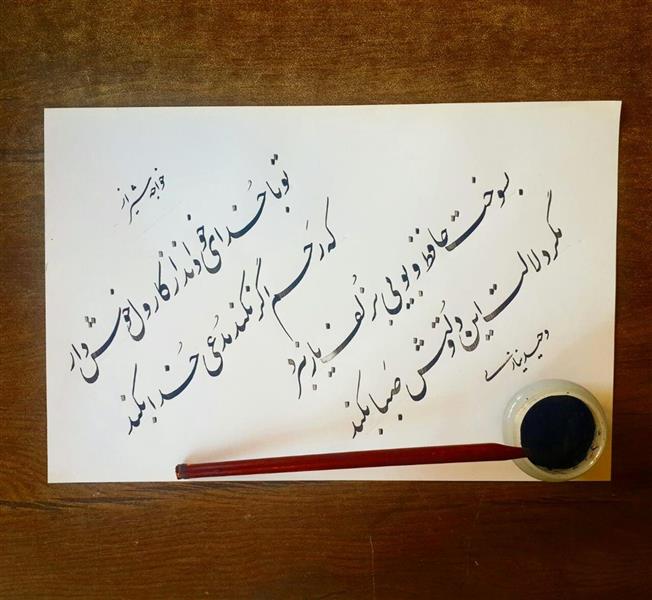 خواجه شیراز
تو با خدای خود انداز کار و دل خوش دار
که رحم اگر نکند مدعی خدا بکند
بسوخت حافظ و بویی بزلف یار نبرد
مگر دلالت این دولتش صبا بکند
وحید